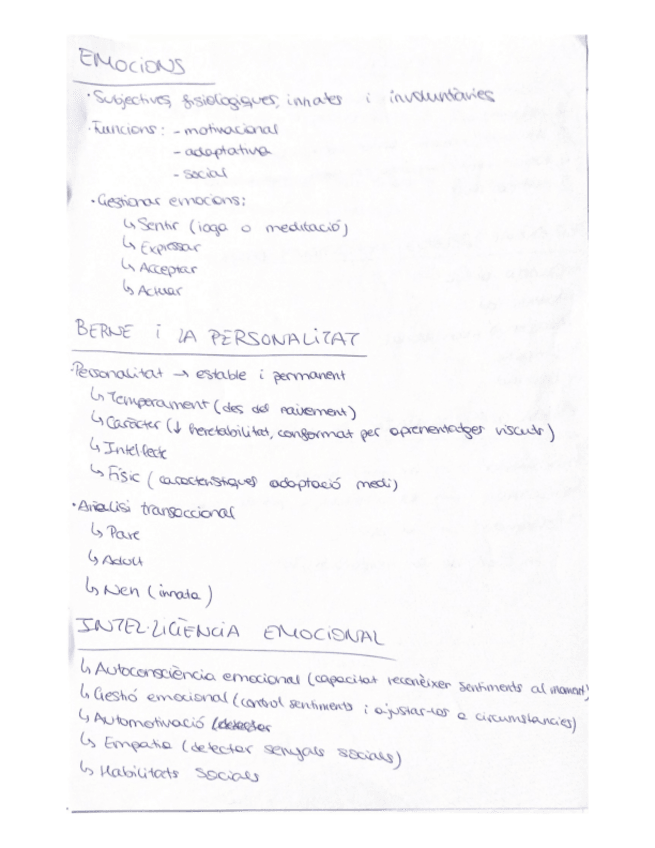 EMOCIONS
· Subjectives, fisiològiques, innates i involuntàries
· Funcions: - motivacional
- adaptativa
- social
· Gestionar emocions:
↳ Sentir (ioga o meditació)
↳ Expressar
↳ Acceptar
↳ Actuar
BERNE i LA PERSONALITAT
· Personalitat → estable i permanent
↳ Temperament (des del naixement)
↳ Caràcter (↓ heretabilitat, conformat per aprenentatges viscuts)
↳ Intel·lecte
↳ Físic (característiques adaptació medi)
· Anàlisi transaccional
↳ Pare
↳ Adult
↳ Nen (innata)
INTEL·LIGÈNCIA EMOCIONAL
↳ Autoconsciència emocional (capacitat reconèixer sentiments al moment)
↳ Gestió emocional (control sentiments i ajustar-los a circumstàncies)
↳ Automotivació (detectar
↳ Empatia (detectar senyals socials)
↳ Habilitats socials